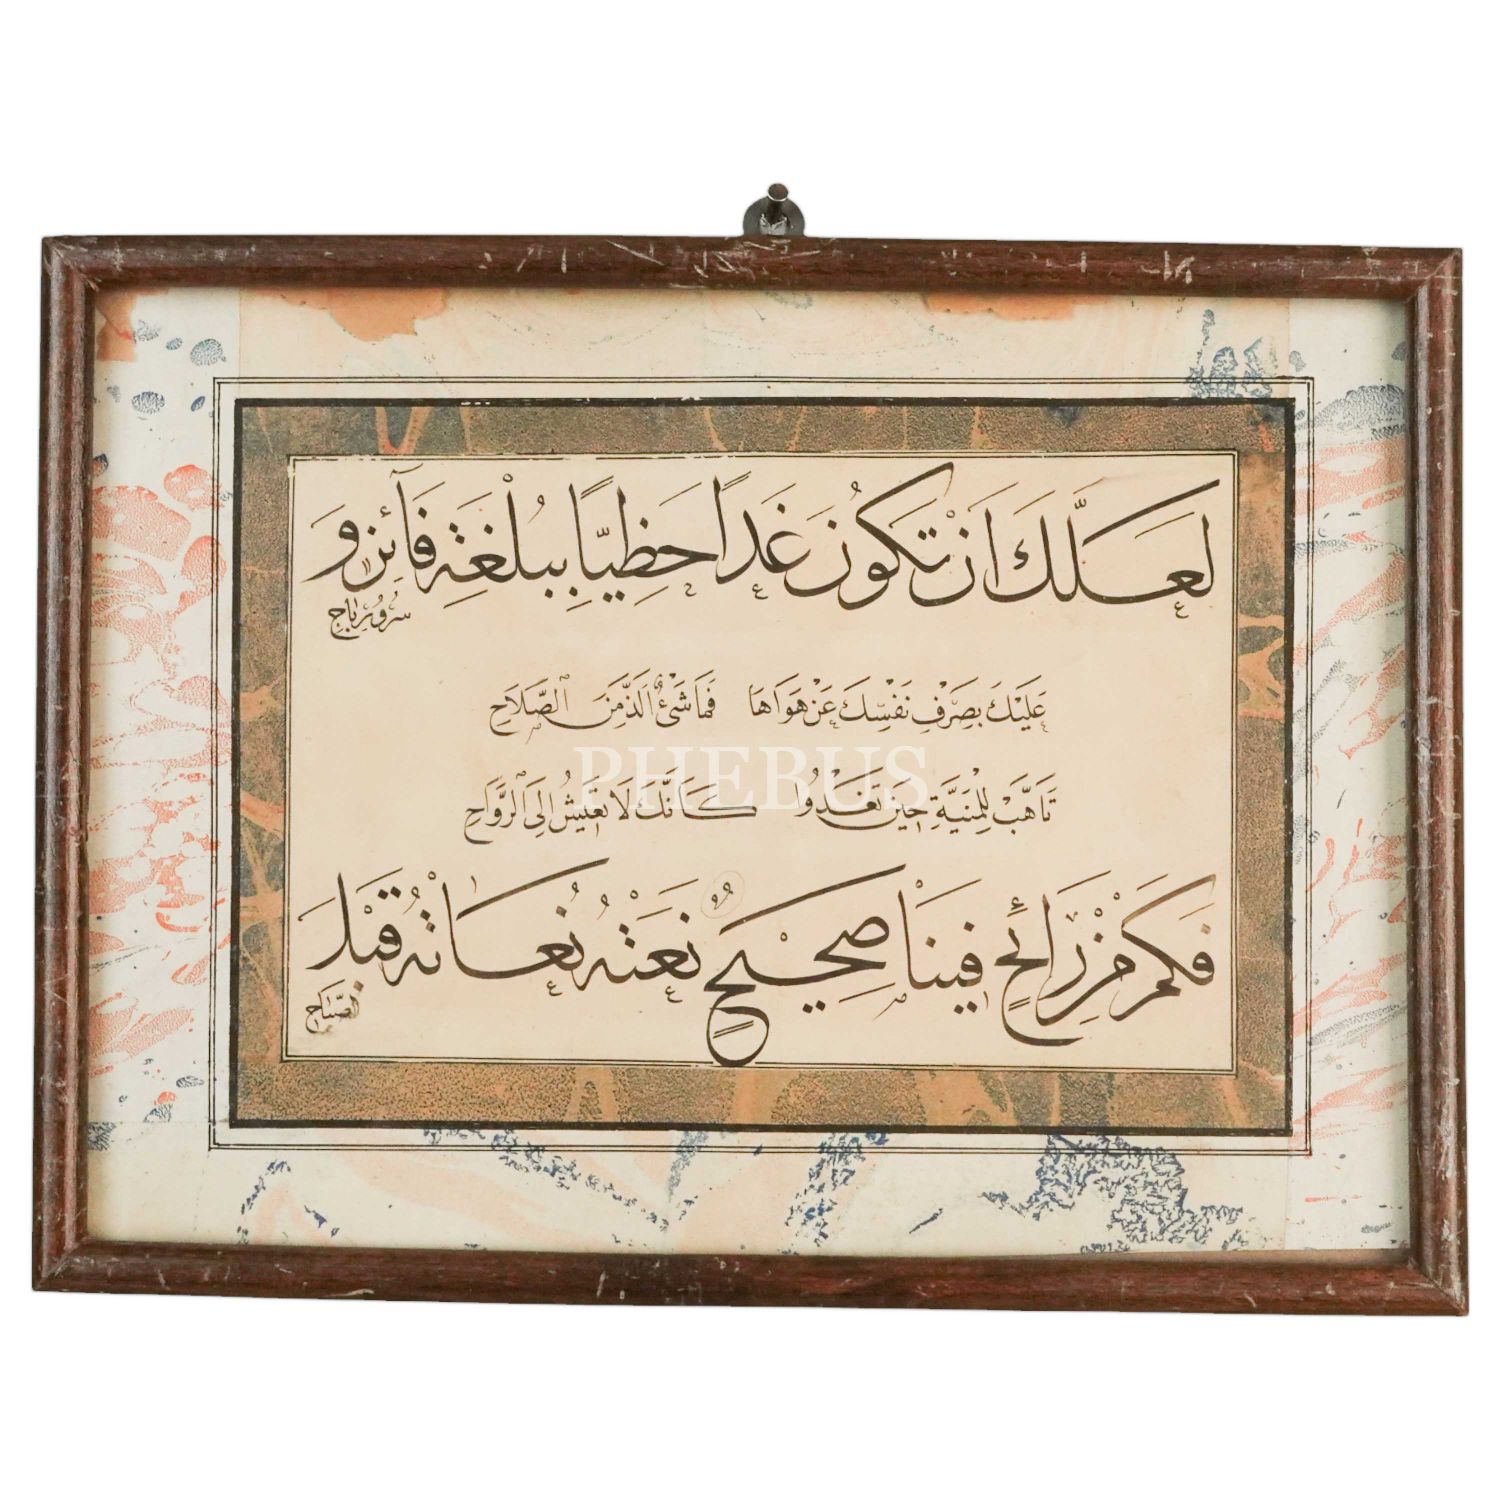 لَعَلَّكَ اَنْ تَكُونَ غَدًا حَظِيًّا بِبُلْغَةِ فَآئِزٍ وَ
سُرُورِ نَاجٍ
عَلَيْكَ بِصَرْفِ نَفْسِكَ عَنْ هَوَاهَا فَمَا شَئٌ اَلَذَّ مِنَ الصَّلَاحِ
PHEBUS
تَاَهَّبْ لِلْمَنِيَّةِ حِينَ تَغْدُوا كَاَنَّكَ لَا تَعِيشُ اِلَى الرَّوَاحِ
فَكَمْ مِنْ رَائِحٍ فِينَا صَحِيحٍ نَعَتْهُ نُعَاتُهُ قَبْلَ
الصَّبَاحِ